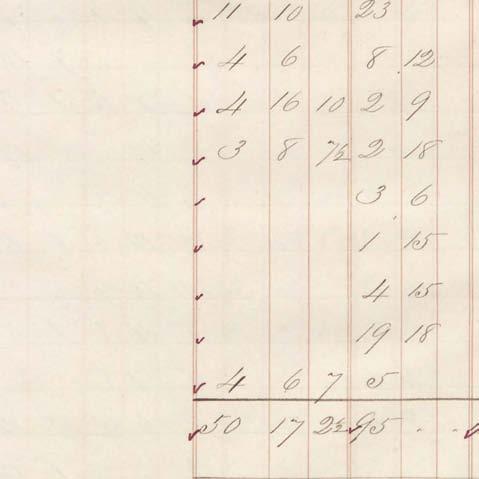 11 10 23
4 6 8 12
4 16 10 2 9
3 8 7½ 2 18
3 6
1 15
4 15
19 18
4 6 7 5
50 17 2½ 95 . .